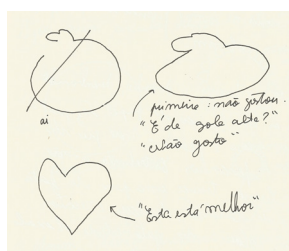 ai
primeiro: não gostou.
"É de gola alta?"
"não gosto"
"Esta está melhor"